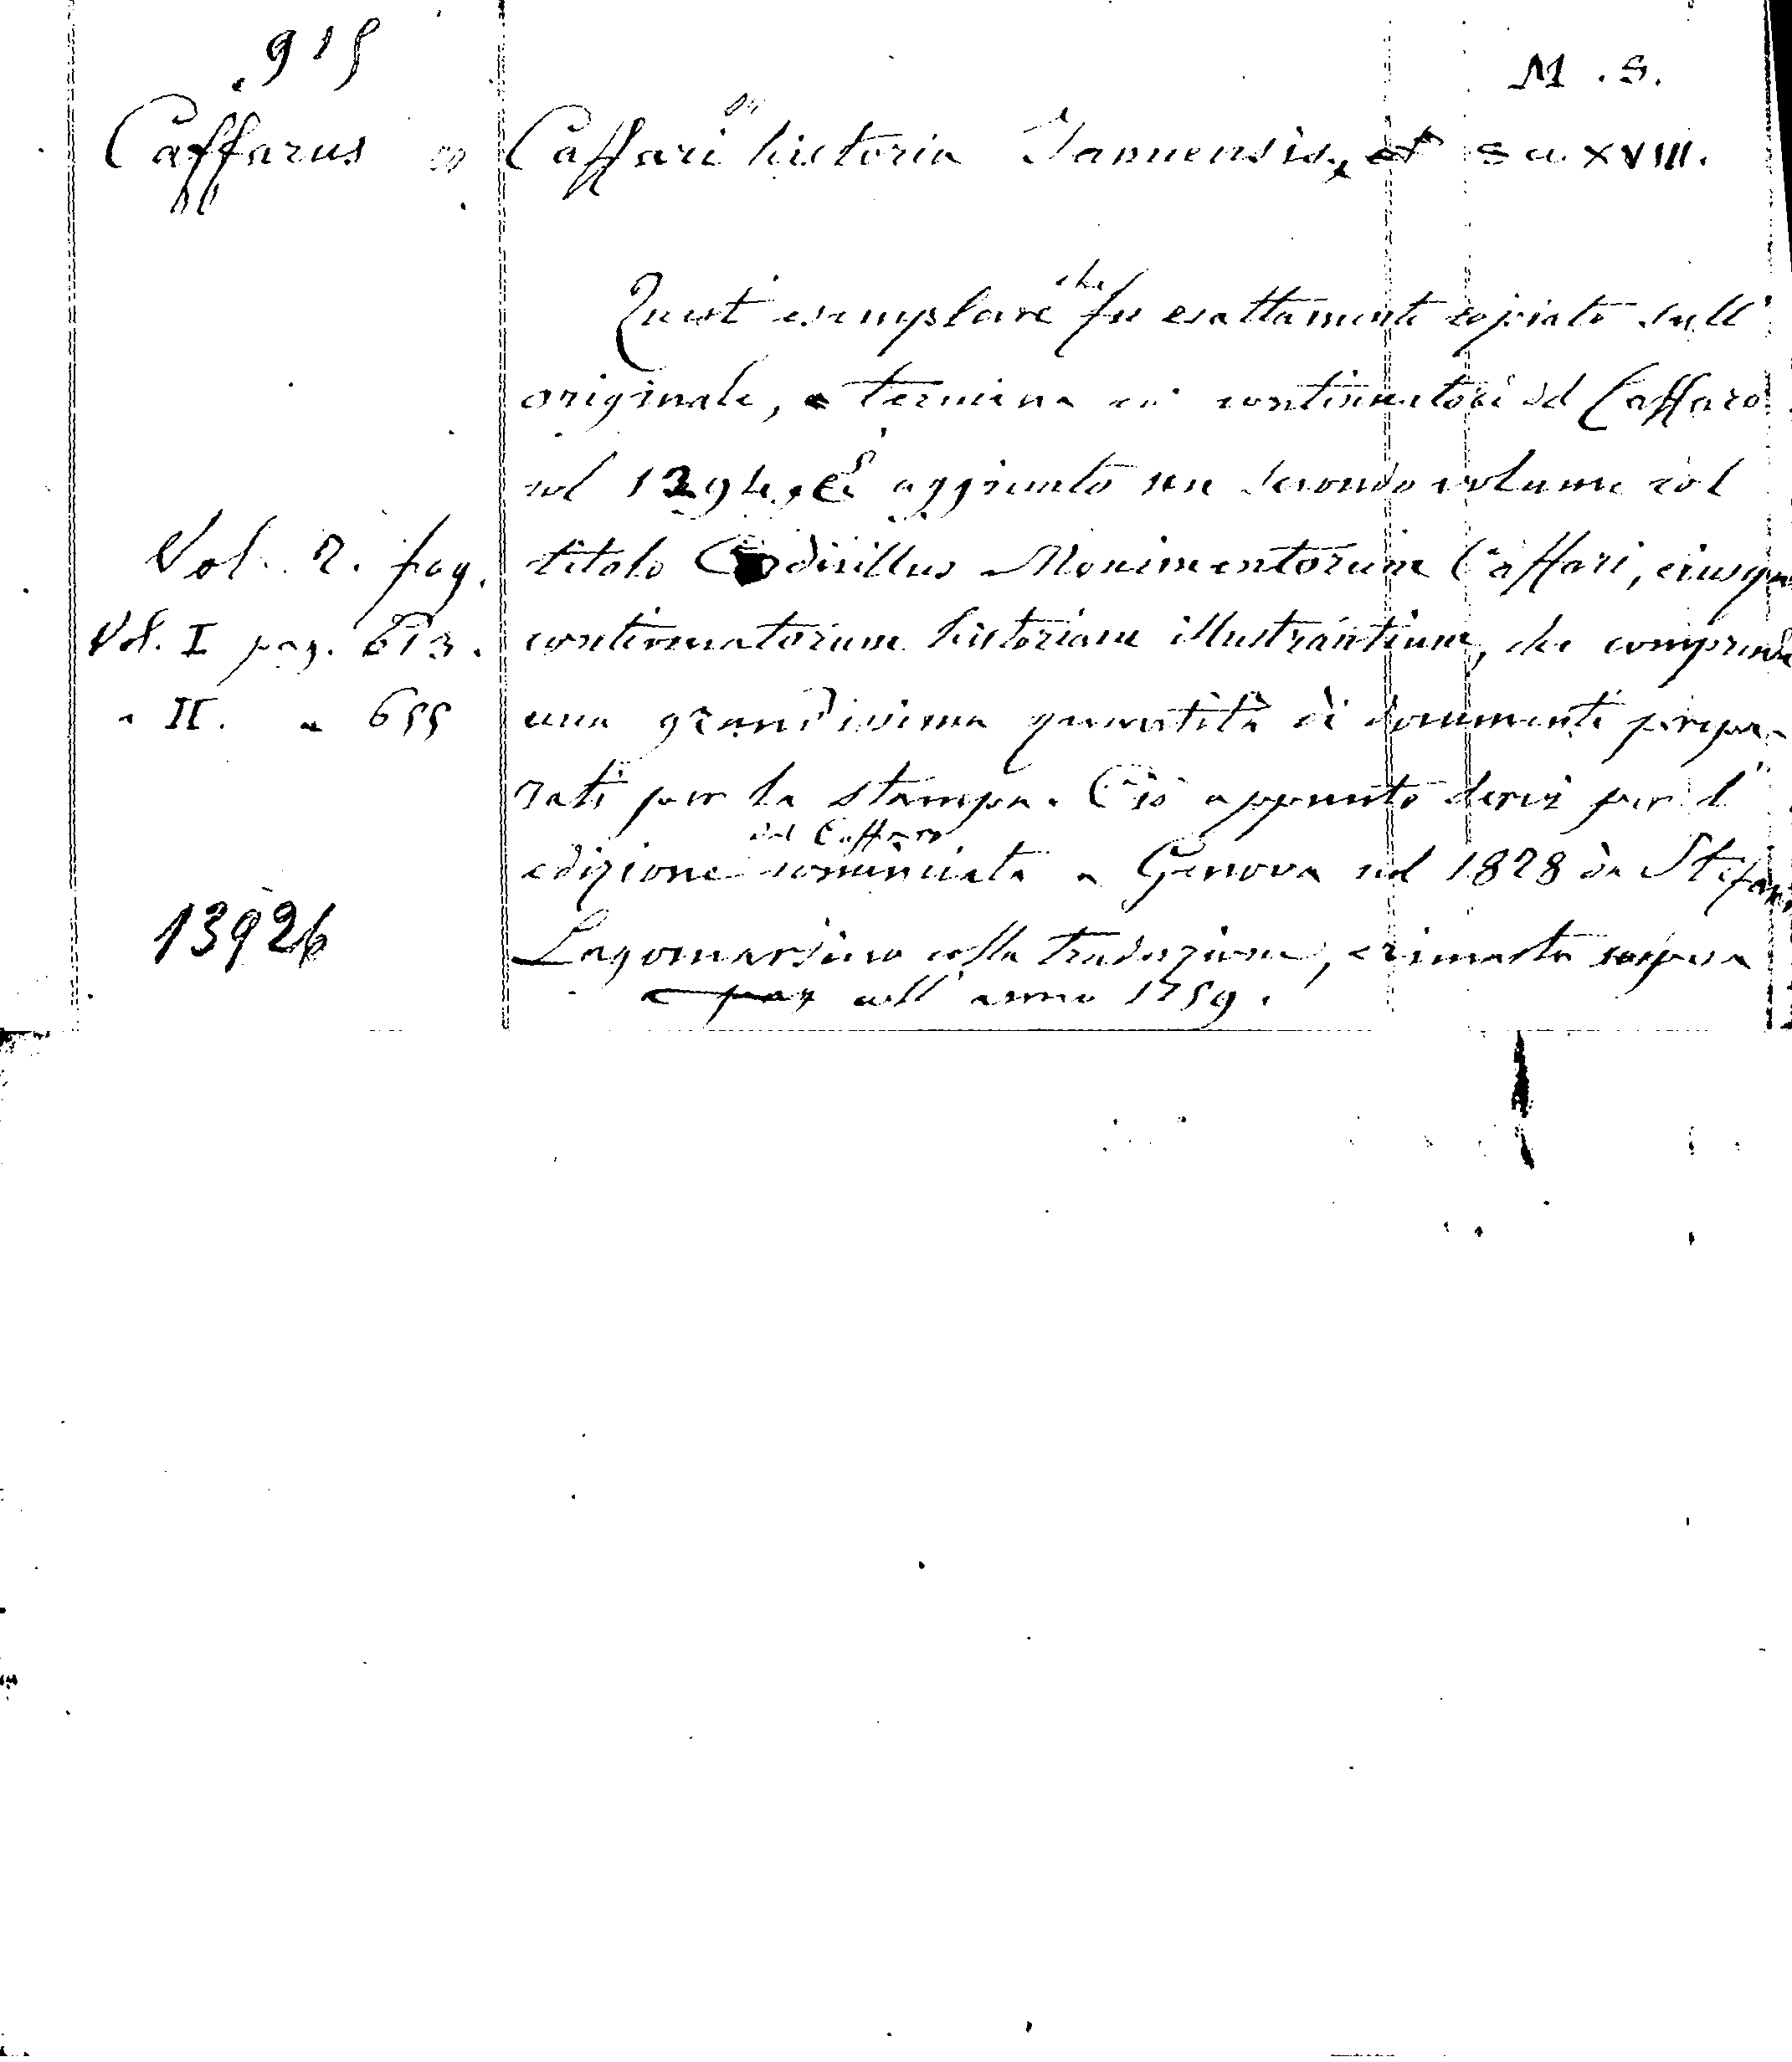 915
M. S.
Caffarus Caffari historia Januensis, sec. XVIII.
Quest' esemplare che fu esattamente copiato sull'
originale, e termina coi continuatori del Caffaro
nel 1294. È aggiunto un secondo volume col
Vol. 2. fog.
titolo Codicillus Monimentorum Caffari, eiusque
Vol. I pag. 613.
continuatorum historiam illustrantium, che comprende
" II. " 655
una grandissima quantità di documenti prepa-
rati per la stampa. Ciò appunto servì per l'
del Caffaro
edizione cominciata a Genova nel 1828 da Stefano
13926
Lagomarsino colla traduzione, e rimasta sospesa
coll' anno 1759.